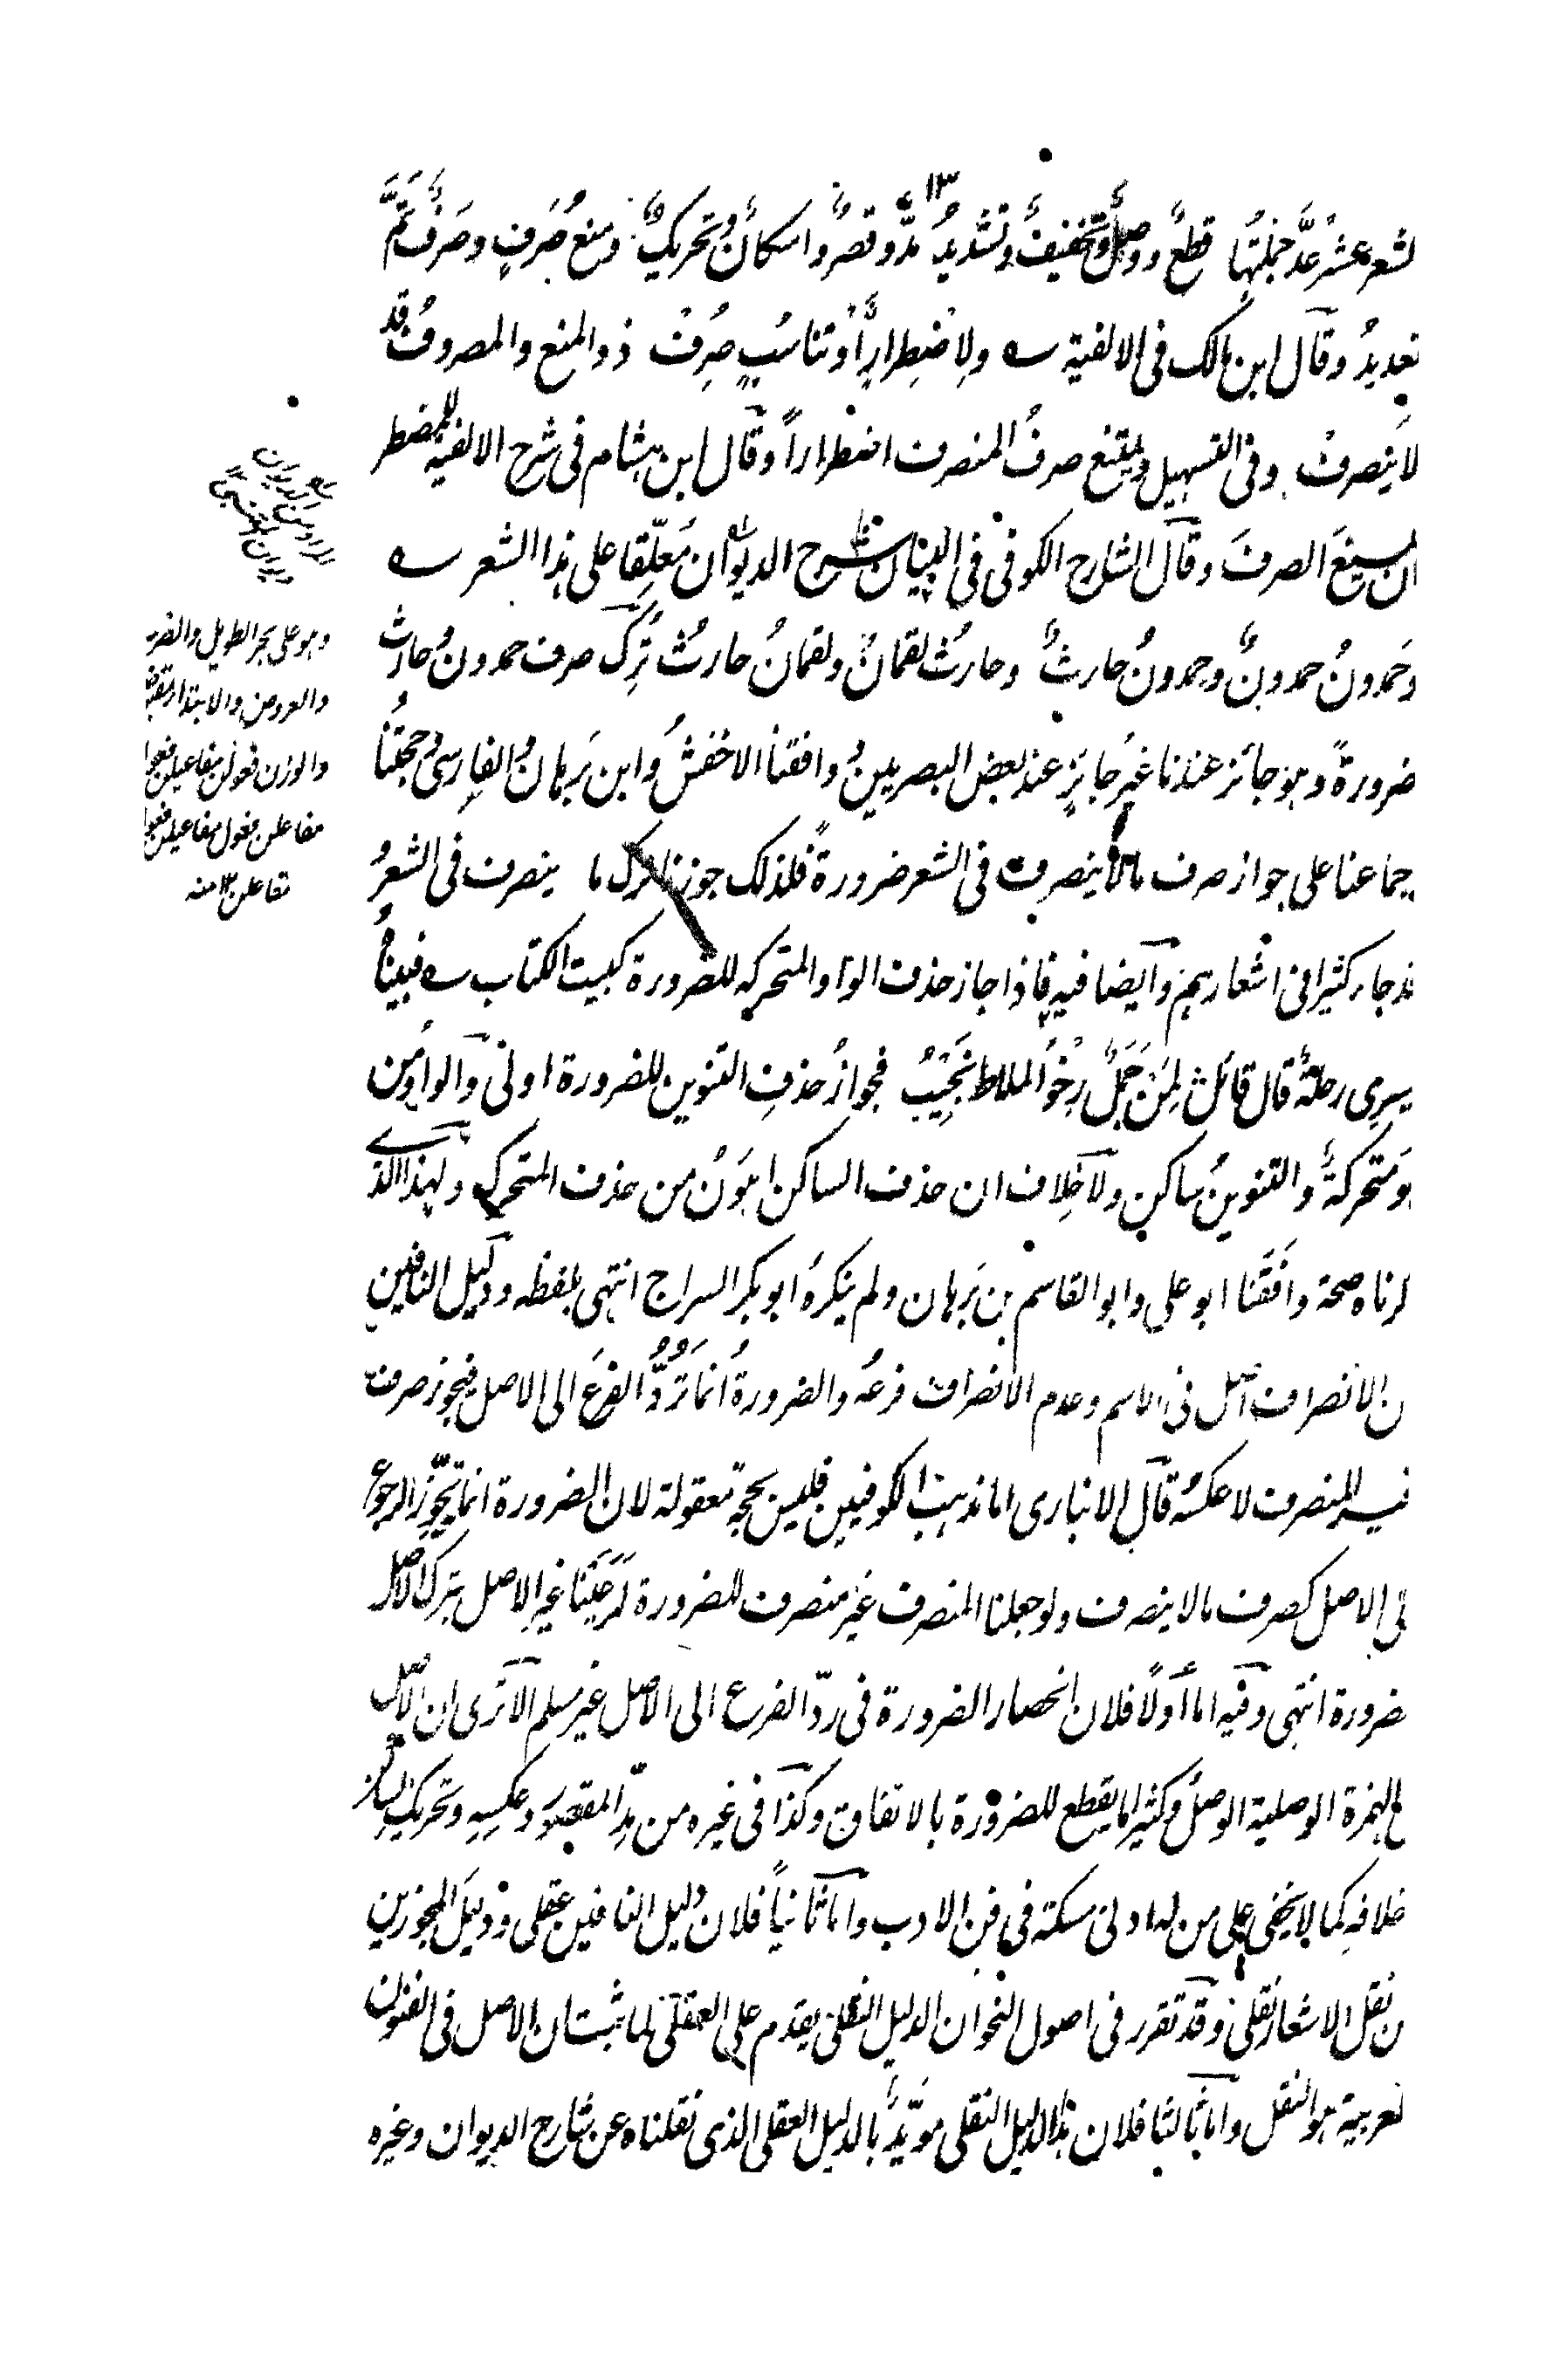 لشعر عشرٌ عدَّ جملتُها قطعٌ ووصلٌ وتخفيفٌ وتشديدُ مدٌّ وقصرٌ واسكانٌ وتحريكٌ ومنعُ صَرفٍ وصَرفٌ تَمَّ
تعديدُ وقال ابن مالك فى الالفية ـه ولِاضْطِرارٍ أوتناسُبٍ صُرِفْ ذو المنع والمصروفُ قد
لا ينصرفْ وفى التسهيل ويمتنع صرفُ المنصرف اضطراراً وقال ابن هشام فى شرح الالفية للمضطر
ان يمنعَ الصرفَ وقال الشارح الكوفى فى التبيان شرح الديوان مُعلِّقا على هذا الشعر ـه
وحَمدونُ حمدونٌ وحمدونُ حارثٌ وحارثُ لقمانٌ ولقمانُ حارثُ تُرِكَ صرف حمدونُ حارث
ضرورةً وهو جائز عندنا غيرُ جايَزٍ عند بعض البصريين وافقنا الاخفشُ وابن بَرهانُ والفارِسىُّ حجتُنا
جماعنا على جواز صرف مالا ينصرف فى الشعر ضرورةً فلذلك جوزنا ترك ما ينصرف فى الشعرُ
قد جاء كثيرا فى اشعارهم وايضا فيه فاذا جاز حذف الواو المتحركه للضرورة كبيت الكتاب ـه فبيناهُ
يسرى رحلَهُ قال قائلٌ لِمَن جَمَلٌ رِخوُ الملاط نَجِيبُ فجوازُ حذفِ التنوين للضرورة اولى والواومن
هوَ متحركةٌ والتنوينُ ساكن ولا خِلاف ان حذف الساكن اهوَنُ من حذف المتحرك ولهذا الذى
كرناه صحة وافَقَنا ابو على وابو القاسم بن بَرهان ولم ينكرهُ ابو بكر السراج انتهى بلفظه ودليل النافين
ن الانصراف اصل فى الاسم وعدم الانصراف فرعُه والضرورةُ انما تَرُدُّ الفرعَ الى الاصل فيجوز صرف
غير المنصرف لا عكسُه قال الانبارى اما مذهب الكوفيين فليس بحجة معقولة لان الضرورة انما تجوّز الرجوع
لى الاصل كصرف مالا ينصرف ولو جعلنا المنصرف غير منصرف للضرورة لرجّحنا غير الاصل بترك الاصل
ضرورة انتهى وفيه اما أوّلاً فلان انحصار الضرورة فى ردّ الفرع الى الاصل غير مسلم الا ترى ان الاصل
فى الهمزة الوصلية الوصل وكثيرا ما يقطع للضرورة بالاتفاق وكذا فى غيره من مدّ المقصور وعكسِهِ وتحريك الساكن
خلافِهِ كما لا يخفى على من له ادنى مسكة فى فن الادب واما ثانياً فلان دليل النافين عقلى ودليل المجوزين
ن نقل الاشعار نقلى وقد تقرر فى اصول النحو ان الدليل النقلى يقدم على العقلى لما ثبت ان الاصل فى الفنون
لعربية هو النقل واما ثالثا فلان هذا الدليل النقلى مؤيّدٌ بالدليل العقلى الذى نقلناه عن شارح الديوان وغيره
وهو على بحر الطويل والضرب
والعروض والابتدا مقبوض
والوزن فعولن مفاعيلن فعول
مفاعلن فعول مفاعيلن فعول
مفاعلن ١٢ منه